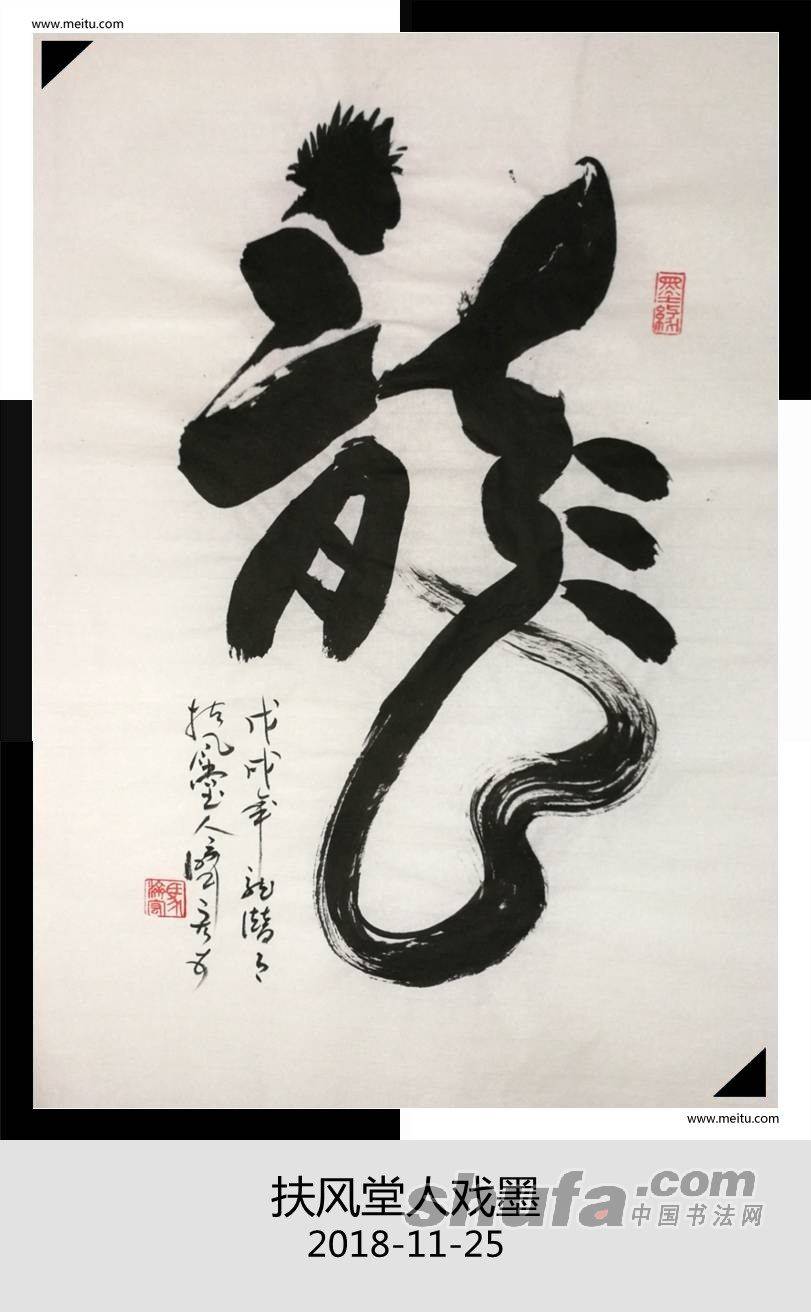 www.meitu.com
龍
戊戌年龍潜月
扶风堂人
www.meitu.com
扶风堂人戏墨
shufa.com
中国书法网
2018-11-25